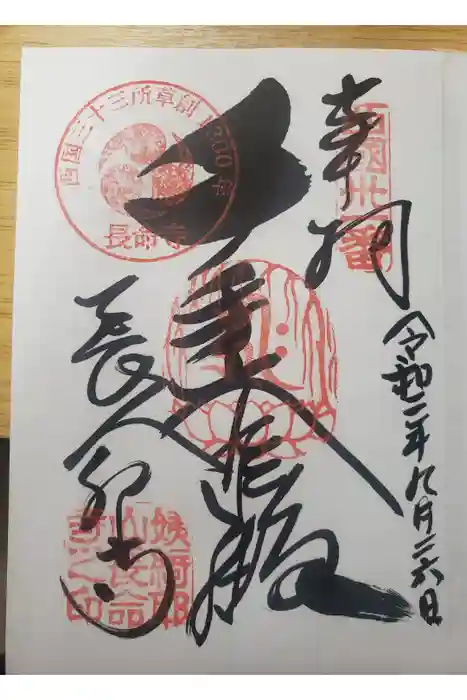 奉拝
西国卅一番
令和二年九月二六日
千手大悲殿
西国三十三所草創1300年
長命寺
長命寺
姨綺耶
山長命
寺之印